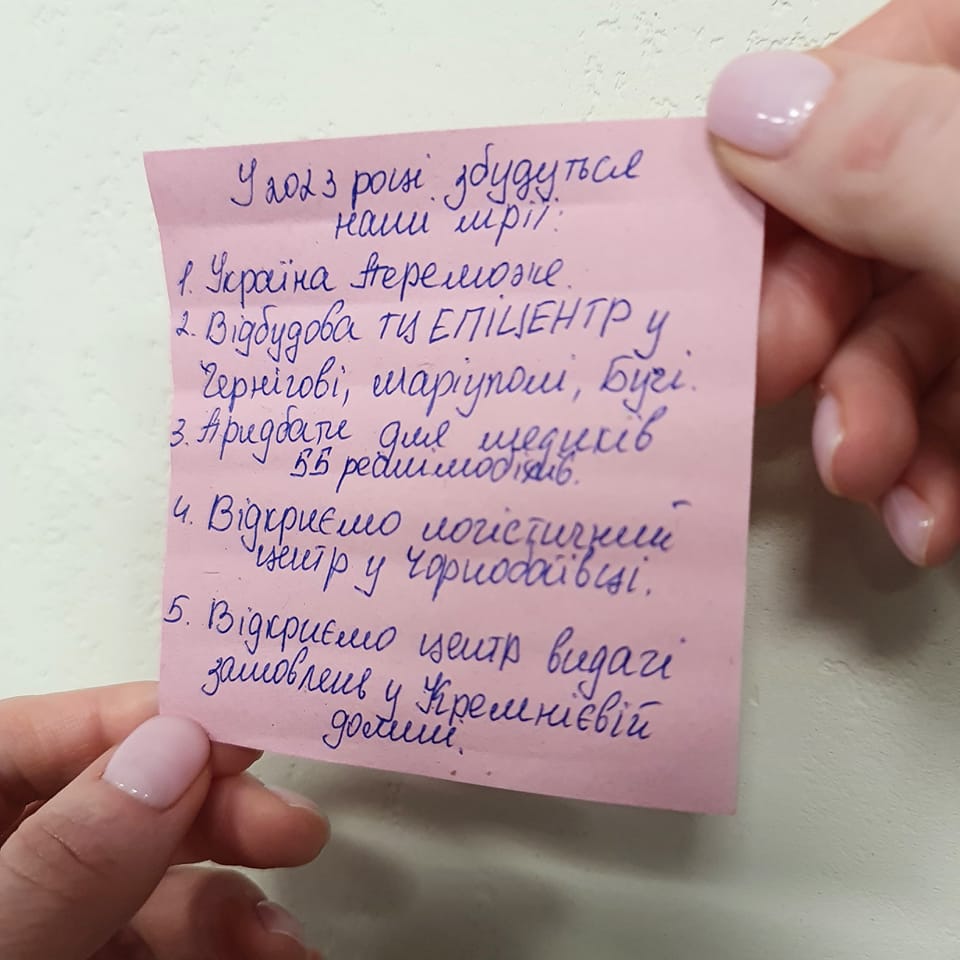 У 2023 році збудуться
наші мрії:
1. Україна переможе.
2. Відбудова ТЦ ЕПІЦЕНТР у
Чернігові, Маріуполі, Бучі.
3. Придбати для медиків
55 реанімобілів.
4. Відкриємо логістичний
центр у Чорнобаївці.
5. Відкриємо центр видачі
замовлень у Кремнієвій
долині.